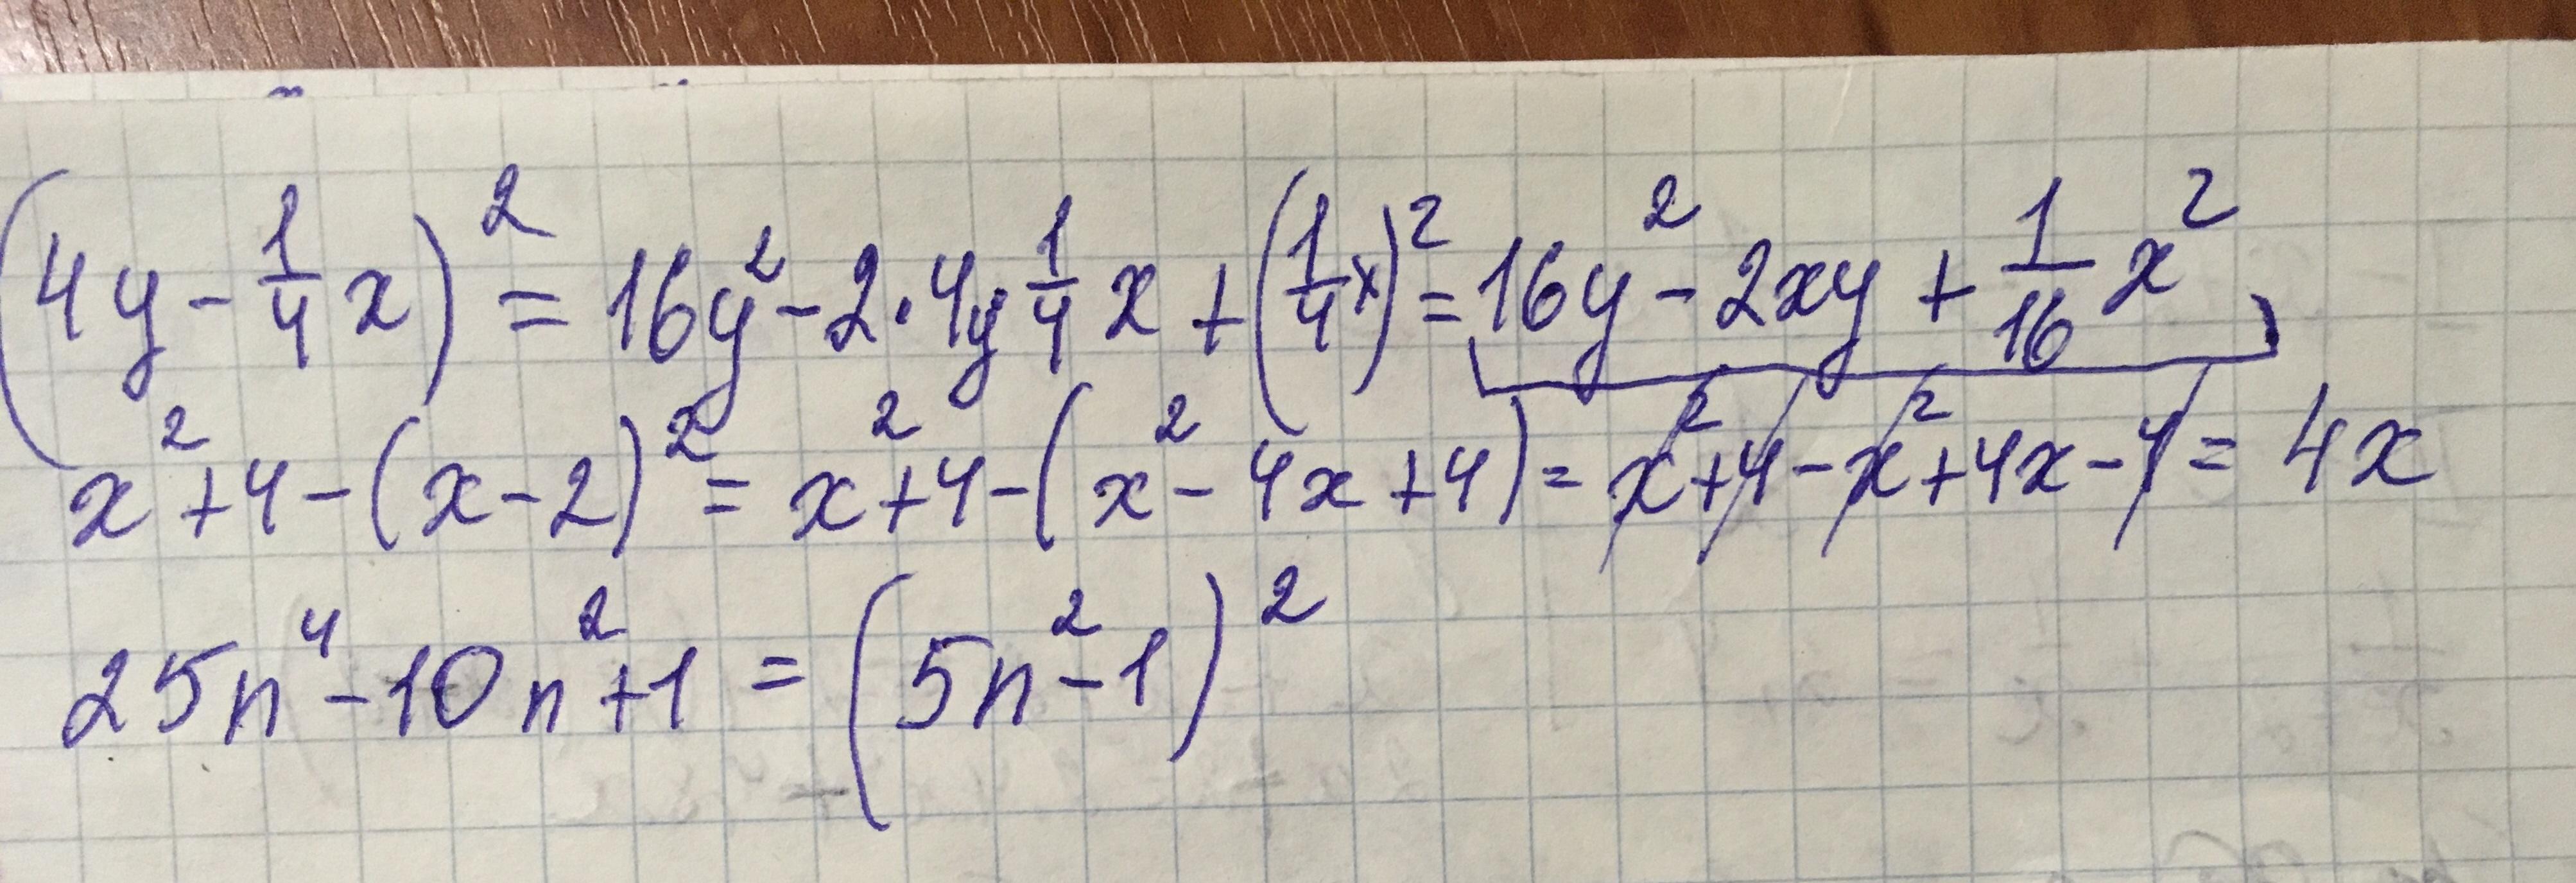 (4y - 1/4 x)² = 16y² - 2·4y 1/4 x + (1/4 x)² = 16y² - 2xy + 1/16 x²
x² + 4 - (x - 2)² = x² + 4 - (x² - 4x + 4) = x² + 4 - x² + 4x - 4 = 4x
25n⁴ - 10n² + 1 = (5n² - 1)²